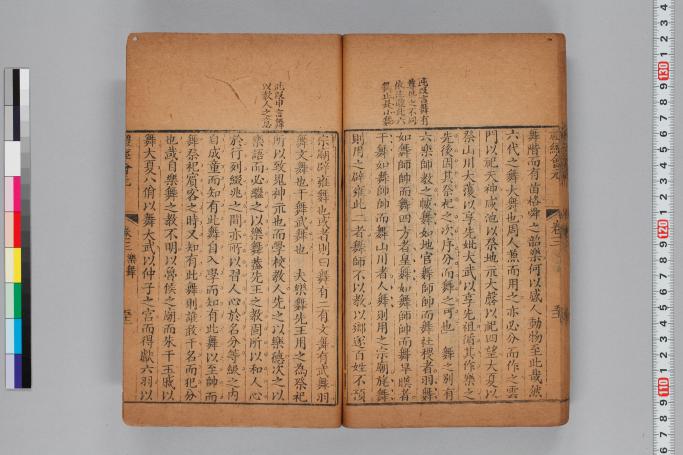 此段言舞有
舞階而有苗格舜之韶樂何以感人動物至此哉然
六代之舞大舞也周人兼而用之亦必分而作之雲
門以祀天神咸池以祭地示大磬以祀四望大夏以
祭山川大濩以享先妣大武以享先祖循其作樂之
先後因其祭祀之次序分而舞之可也 舞之別有
六樂師教之帗舞如地官舞師帥而舞社稷者羽舞
如舞師帥而舞四方者皇舞如舞師帥而舞旱暵者
干舞如舞師帥而舞山川者人舞則用之宗廟旄舞
則用之辟雍此二者舞師不以教以鄉遂百姓不預
宗廟辟雍也或者則曰舞有二有文舞有武舞羽
舞文舞也干舞武舞也 夫樂舞先王用之為祭祀
所以致鬼神示也而學校教人先之以樂德次之以
樂語而必繼之以樂舞蓋先王之教周所以和人心
於行列綴兆之間亦所以習人心於名分等級之內
自成童而知有此舞自入學而知有此舞以至帥而
舞祭祀賓客之時又知有此舞則誰敢干名而犯分
也哉自樂舞之教不明以魯侯之廟而朱干玉戚以
舞大夏八佾以舞大武以仲子之宮而得獻六羽以
此段申言舞
以教人之意
卷三 樂舞